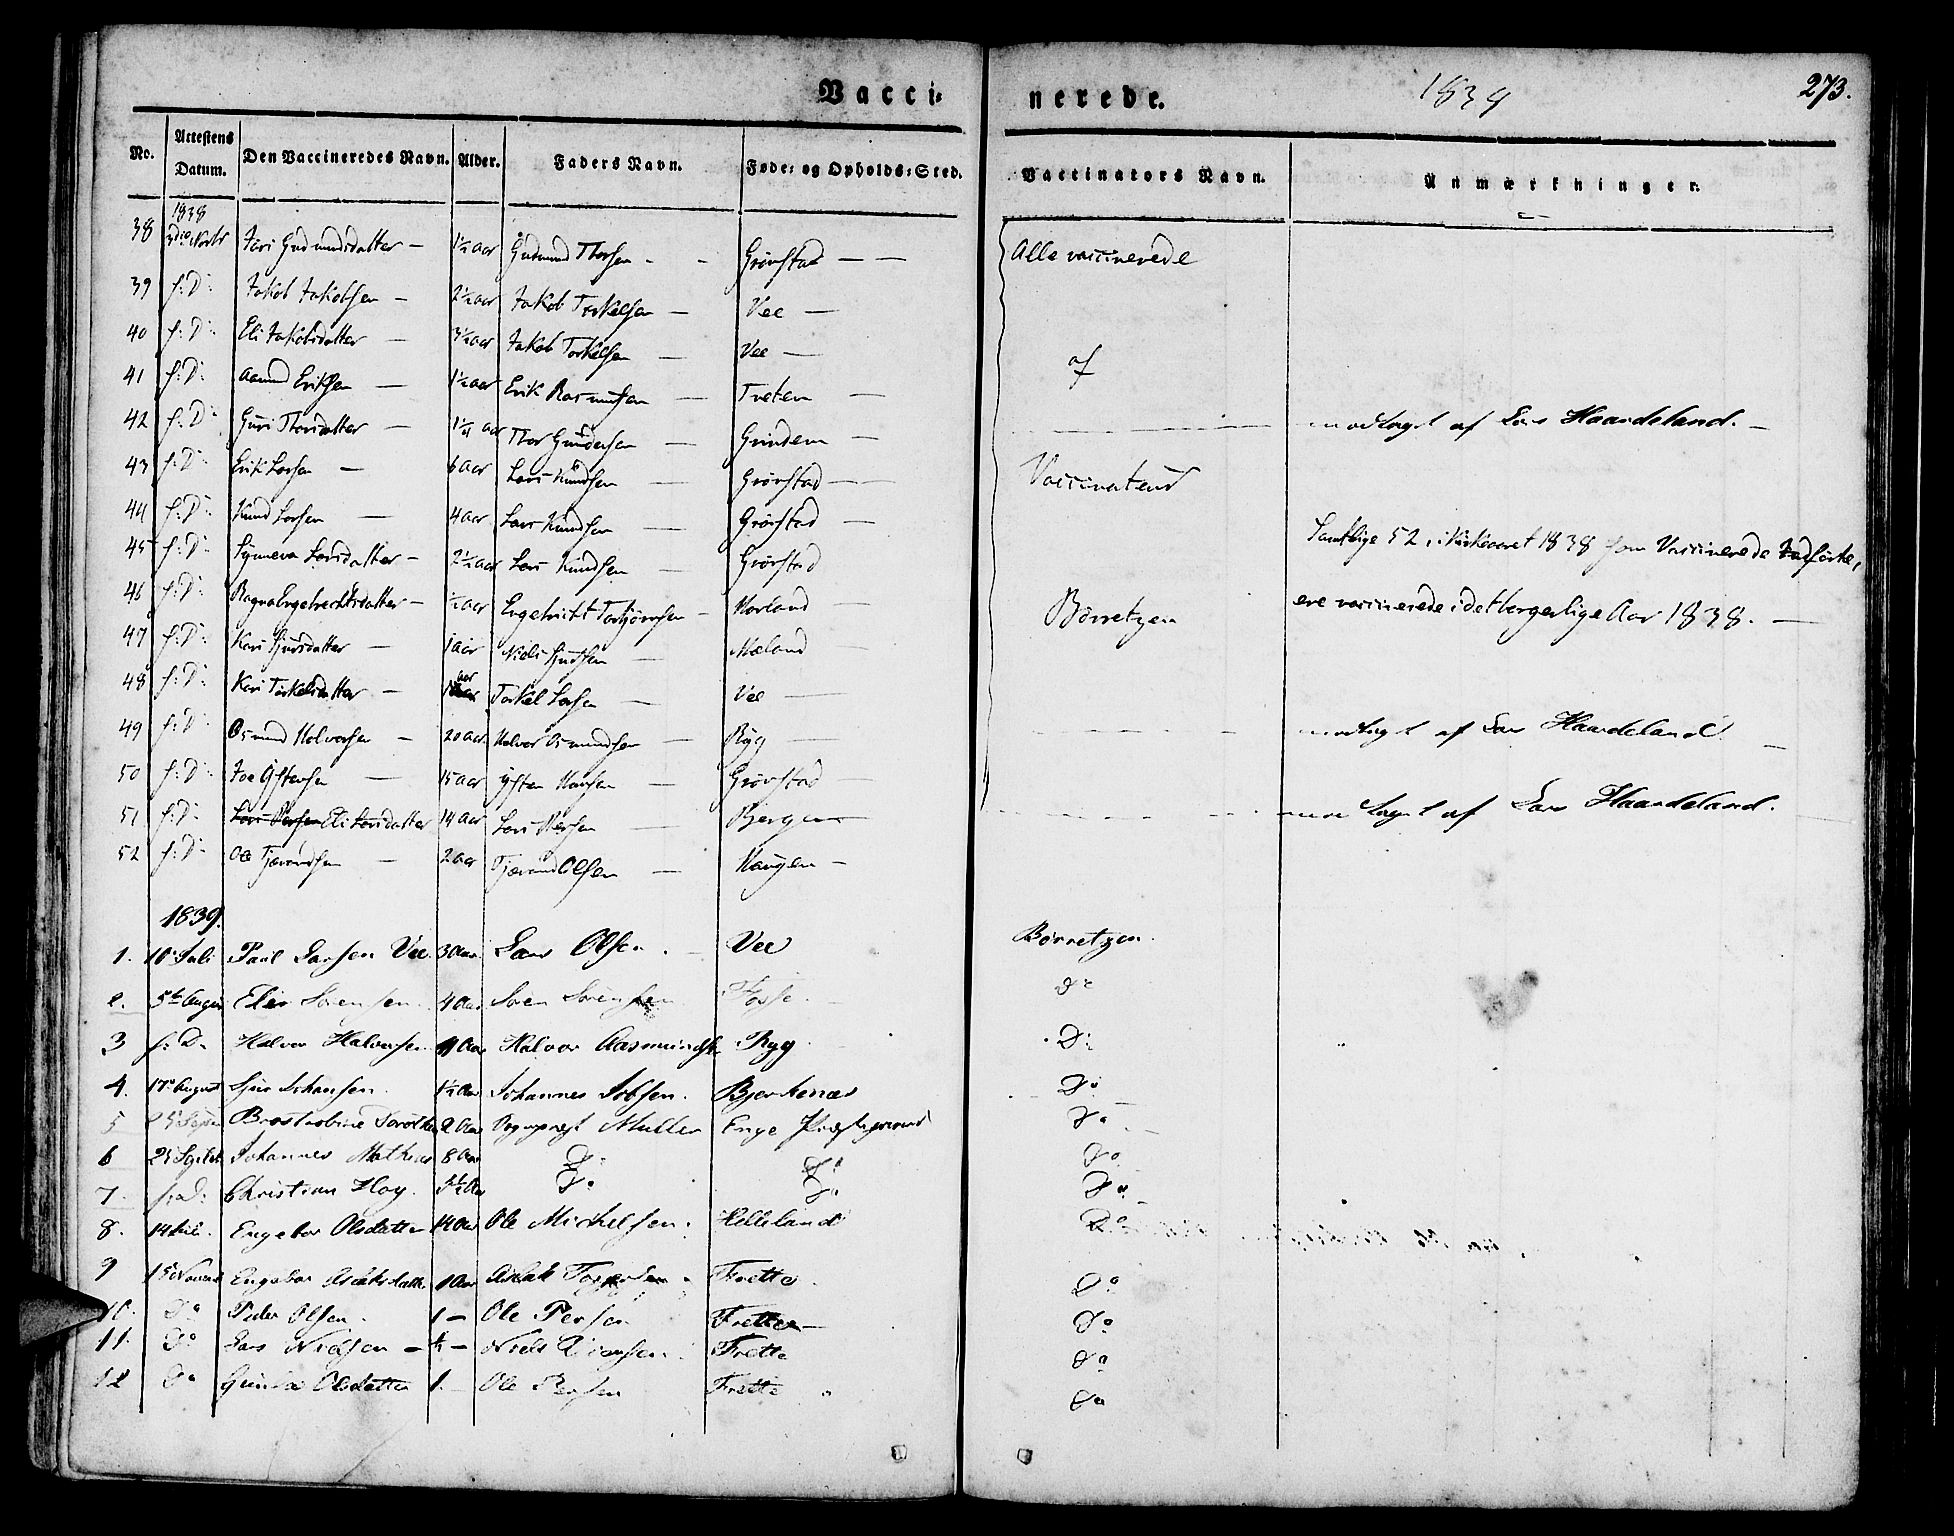 Vacci- nerede. 1839 273.
No. Attestens Datum. Den Vaccineredes Navn. Alder. Faders Navn. Føde- og Opholds-Sted. Vaccinators Navn. Anmærkninger.
1838
38 Novbr Guri Gudmundsdatter – 1½ Aar Gudmund Thorsen - - Grørstad — — Alle vaccinerede
39 s: D: Jakob Jakobsen – 2½ Aar Jakob Torkelsen – Vee —
40 s: D: Eli Jakobsdatter — 3½ Aar Jakob Torkelsen — Vee — af
41 s: D: Aamund Eriksen — 1½ Aar Erik Rasmussen — Tveten —
42 s: D: Guri Thorsdatter — 1¼ Aar Thor Gundersen — Grinden — modtaget af Lars Haardeland. –
43 s: D: Erik Larsen — 6 Aar Lars Knudsen — Grørstad — Vaccinateur
44 s: D: Knud Larsen — 4 Aar Lars Knudsen — Grørstad —
45 s: D: Synneva Larsdatter – 2½ Aar Lars Knudsen — Grørstad Samtlige 52, i Kirkeaaret 1838 som Vaccinerede indførte,
46 s: D: Ragna Engebrechtsdatter – ½ Aar Engebricht Torbjørnsen – Norland — Børretzen ere vaccinerede i det borgerlige Aar 1838. —
47 s: D: Kari — 1 Aar Niels — Mæland —
48 s: D: Kari Torkelsdatter — 1 Aar Torkel Larsen — Vee —
49 s: D: Osmund Halvorsen – 20 Aar Halvor Osmundsen — Ryg — modtaget af Lars Haardeland –
50 s: D: — 15 Aar Hansen — Grørstad —
51 s: D: Lars Persen Eli Larsdatter 14 Aar Lars Persen — Bjergen — modtaget af Lars Haardeland.
52 s: D: Ole Tjærandsen — 2 Aar Tjærand Olsen — Haugen –
1839.
1. 10 Juli Paul Larsen Vee. 3 Aar. Lars Olsen. – Vee Børretzen.
2. 5te August Elias Sørensen. 4 Aar Søren Sørensen Fosse. Do
3 s: D: Halvor Halvorsen 9 Aar Halvor Aasmundsen Ryg Do
4. 17 August Johansen. 1½ Aar Johannes Jobsen. Bjerkenæs Do
5 25 Septbr 2 Aar Sognepræst Müller Enge Præstegaard Do
6 25 Septbr Johannes Mathias 8 Aar Do Do Do
7. s: D: Christian Høy. Aar Do Do Do
8. 14 Juli. Engebor Olsdatter 14 Aar Ole Michelsen. Helleland Do
9 15 Novemb Engebor Aslaksdatter 1 Aar Aslak Frette. Do
10. Do Peder Olsen. 1 – Ole Persen Frette – Do
11. Do Lars Nielsen – ½ – Niels Frette Do
12 Do Olsdatter 1. Ole Persen Frette. Do